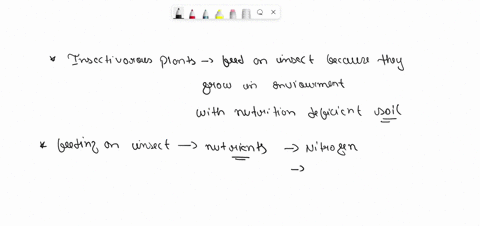 * Insectivorous plants → feed on insect because they
grow in enviourment
with nutrition deficient soil
* feeding on insect → nutrients → Nitrogen
→